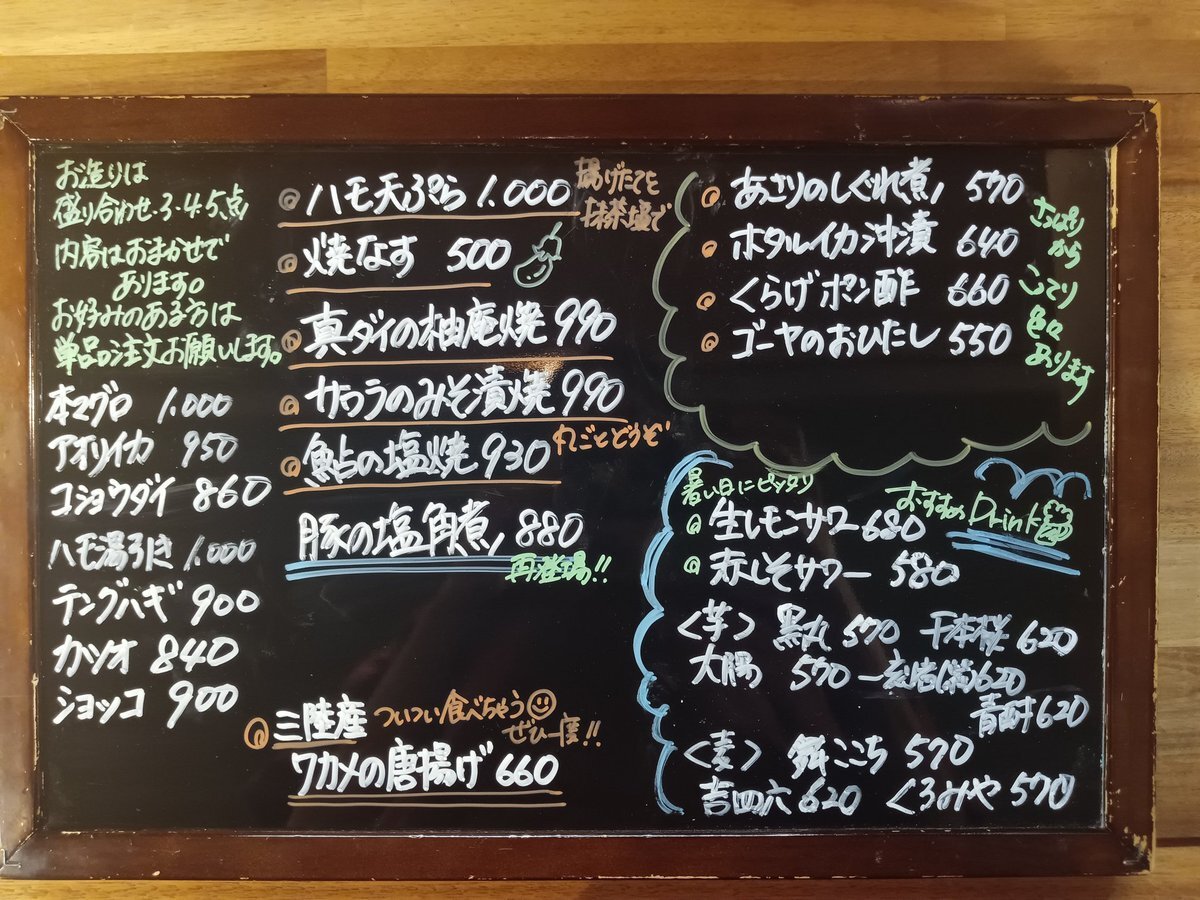 お造りは
盛り合わせ・3・4・5点
内容はおまかせで
あります。
お好みのある方は
単品の注文お願いします。
本マグロ 1.000
アオリイカ 950
コショウダイ 860
ハモ湯引き 1.000
テングハギ 900
カツオ 840
ショッコ 900
ハモ天ぷら 1.000
揚げたてを
抹茶塩で
焼なす 500
真ダイの柚庵焼 990
サワラのみそ漬焼 990
鮎の塩焼 930
丸ごとどうぞ
豚の塩角煮 880
再登場!!
三陸産 ついつい食べちゃう
ぜひ一度!!
ワカメの唐揚げ 660
あさりのしぐれ煮 570
ホタルイカ沖漬 640
くらげポン酢 660
ゴーヤのおひたし 550
さっぱり
から
こってり
色々
あります
暑い日にピッタリ
おすすめ Drink
生レモンサワー 680
赤しそサワー 580
<芋> 黒丸 570 千本桜 620
大陽 570 一刻岩(紫) 620
620
<麦> 舞ここち 570
吉四六 620 くろみや 570